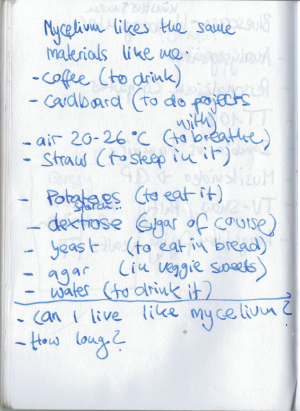 Mycelium likes the same
materials like me.
- coffee (to drink)
- cardboard (to do projects
with)
- air 20-26 °C (to breathe)
- Straw (to sleep in it)
- Potatoes (to eat it)
- dextrose (sugar of course)
- yeast (to eat in bread)
- agar (in veggie sweets)
- water (to drink it)
- Can I live like mycelium?
- How long?